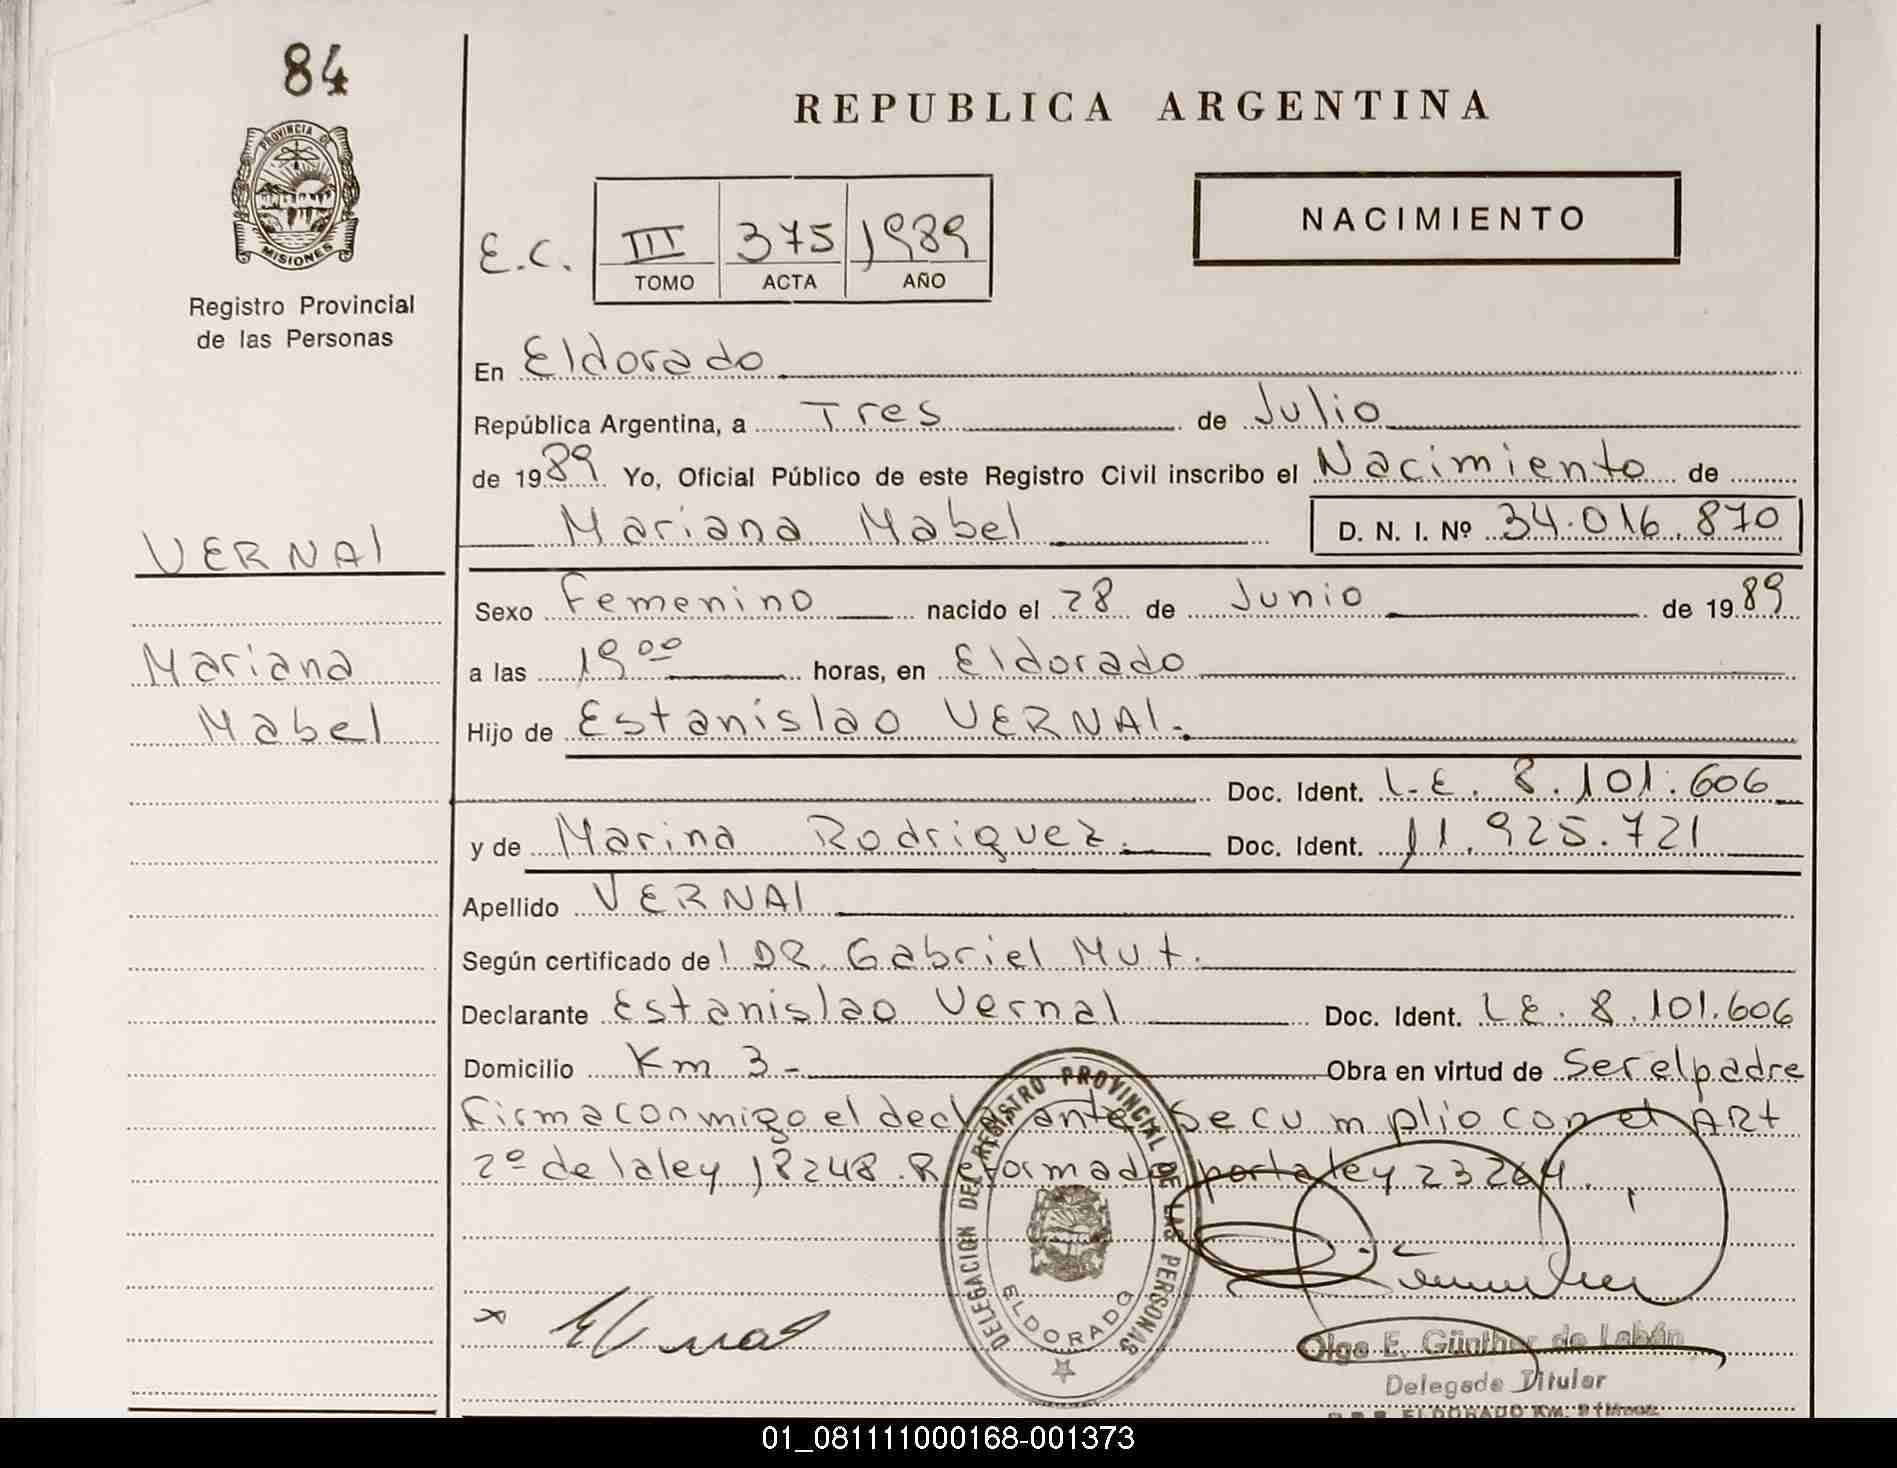 84
PROVINCIA DE
MISIONES
Registro Provincial
de las Personas
REPUBLICA ARGENTINA
NACIMIENTO
E.C. III 375 1989
TOMO ACTA AÑO
En Eldorado
República Argentina, a Tres de Julio
de 1989 Yo, Oficial Público de este Registro Civil inscribo el Nacimiento de
Mariana Mabel D. N. I. Nº 34.016.870
VERNAl
Sexo Femenino nacido el 28 de Junio de 1989
Mariana
a las 19 00 horas, en Eldorado
Mabel
Hijo de Estanislao VERNAl.
Doc. Ident. L.E. 8.101.606
y de Marina Rodriguez. Doc. Ident. 11.925.721
Apellido VERNAl
Según certificado de l DR. Gabriel Mut.
Declarante Estanislao Vernal Doc. Ident. L.E. 8.101.606
Domicilio Km 3 - Obra en virtud de Ser el padre
Firma conmigo el declarante Se cumplio con el ARt
2º de la ley 18248. Reformada por la ley 23264.
DELEGACION DEL REGISTRO PROVINCIAL DE LAS PERSONAS
ELDORADO
x
Olga E. Günther de Labán
Delegada Titular
ELDORADO Km. 9
01_081111000168-001373